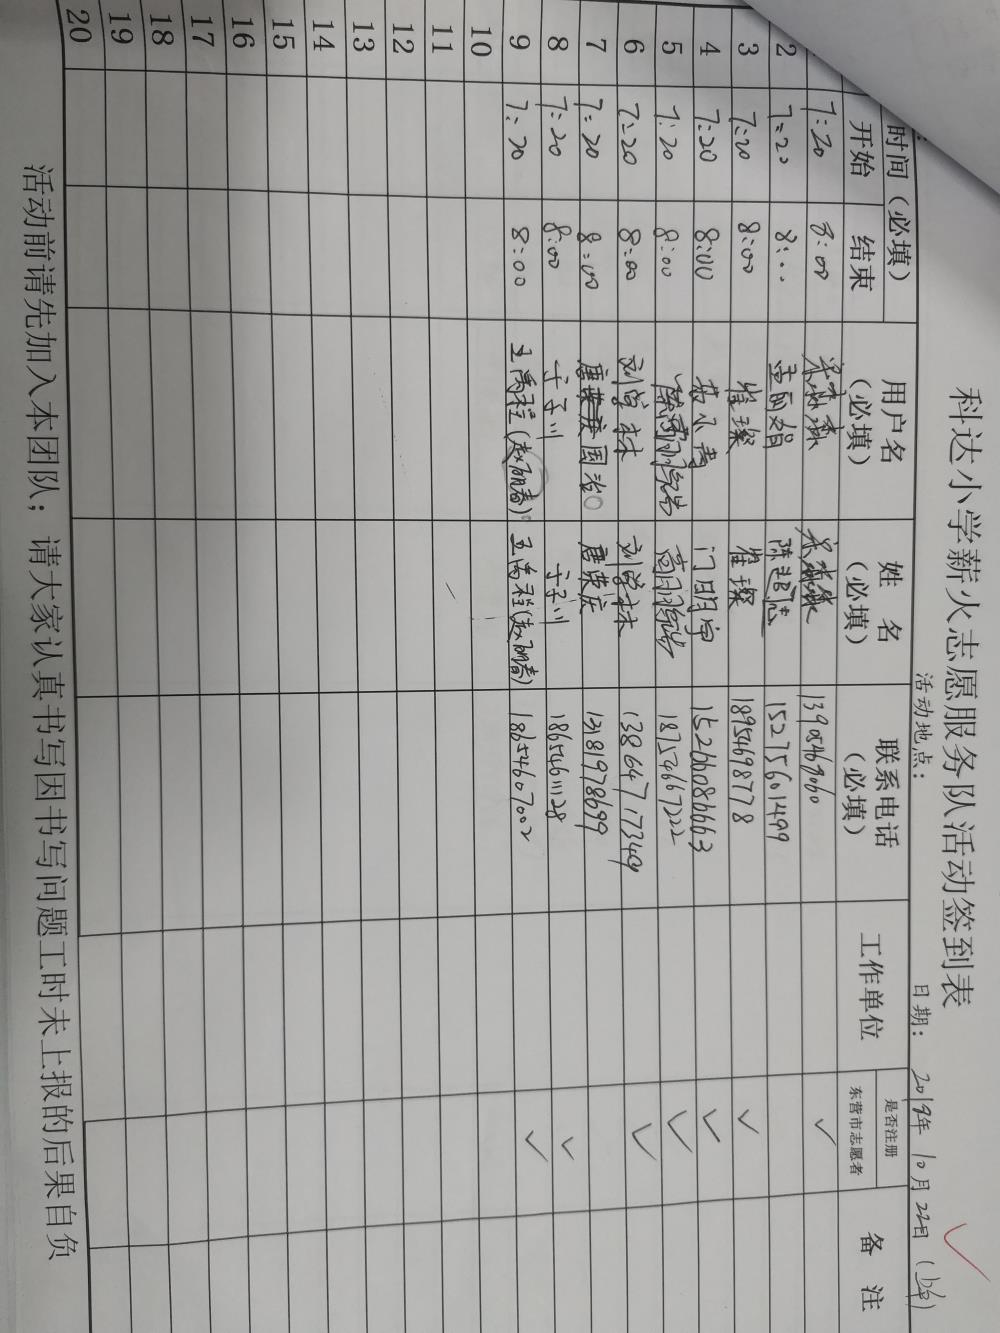 科达小学薪火志愿服务队活动签到表
活动地点： 日期： 2019年 10月 22日
时间（必填） 用户名（必填） 姓名（必填） 联系电话（必填） 工作单位 是否注册东营市志愿者 备注
开始 结束
7:20 8:00 13905469060 ✓
2 7:20 8:.. 15275601499
3 7:20 8:00 崔璨 崔璨 18954698778 ✓
4 7:20 8:00 15266086663 ✓
5 7:20 8:00 18754667222 ✓
6 7:20 8:00 刘学林 刘学林 13864717349 ✓
7 7:20 8:00 唐荣庆国治 唐荣庆 13181978699
8 7:20 8:00 于子川 于子川 18654611128 ✓
9 7:20 8:00 王禹程(赵丽春) 王禹程(赵丽春) 18654607002 ✓
10
11
12
13
14
15
16
17
18
19
20
活动前请先加入本团队；请大家认真书写因书写问题工时未上报的后果自负